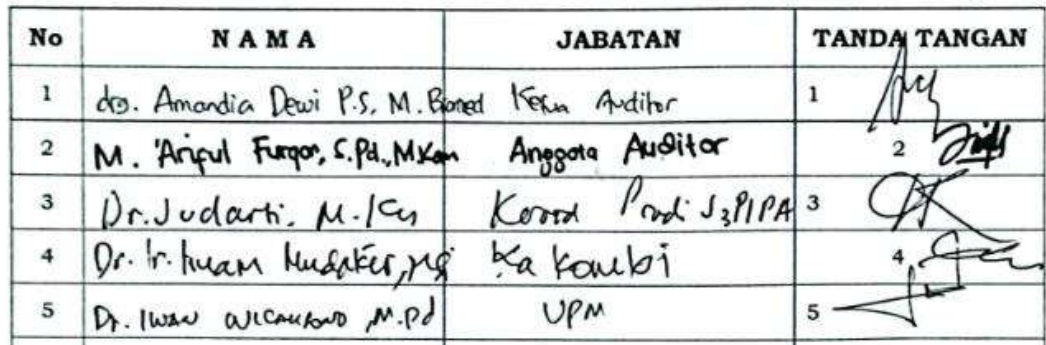 No NAMA JABATAN TANDA TANGAN
1 drg. Amandia Dewi P.S, M. Biomed Ketua Auditor 1
2 M. 'Ariful Furqon, S.Pd., M.Kom Anggota Auditor 2
3 Dr. Sudarti, M.Kes Koord Prodi S3 PIPA 3
4 Dr. Ir. Imam Mudakir, M.Si Ka Kombi 4
5 Dr. Iwan Wicaksono, M.Pd UPM 5